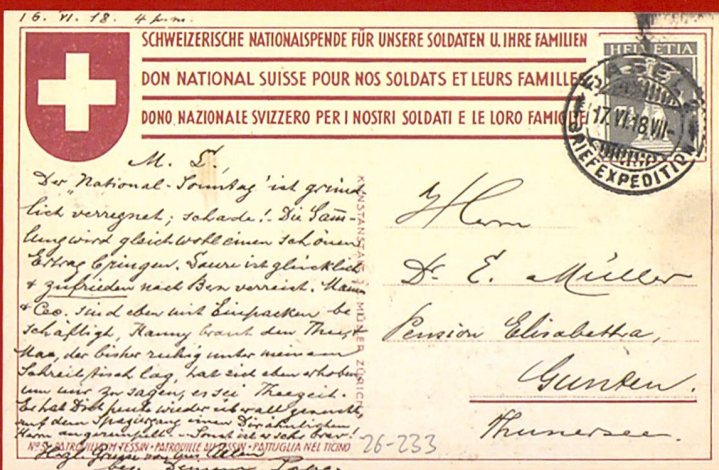 16. VI. 18. 4 p.m.
SCHWEIZERISCHE NATIONALSPENDE FÜR UNSERE SOLDATEN U. IHRE FAMILIEN
DON NATIONAL SUISSE POUR NOS SOLDATS ET LEURS FAMILLE
DONO NAZIONALE SVIZZERO PER I NOSTRI SOLDATI E LE LORO FAMIGLIE
HELVETIA
17.VI.18.VII-
BRIEFEXPEDITION
M. L.
Der "National-Sonntag" ist gründ-
lich verregnet; schade! - Die Samm-
lung wird gleichwohl einen schönen
Ertrag bringen. ist glücklich
& zufrieden nach Bern verreist. Mama
& sind eben mit Einpacken be-
schäftigt, Hanny braut den Thee, &
Max, der bisher ruhig unter meinem
Schreibtisch lag, hat sich eben erhoben
um mir zu sagen, es sei Theezeit.
Er hat Dich heute wieder überall gesucht,
auf dem Spaziergang einen Dir ähnlichen
Herrn angerempelt - Sonst ist er sehr brav!
Herrn
Dr. E. Müller
Pension Elisabetha,
Gunten.
Thunersee.
KUNSTANSTALT J. C. MÜLLER ZÜRICH
PATROUILLE IM TESSIN · PATROUILLE AU TESSIN · PATTUGLIA NEL TICINO
26-233